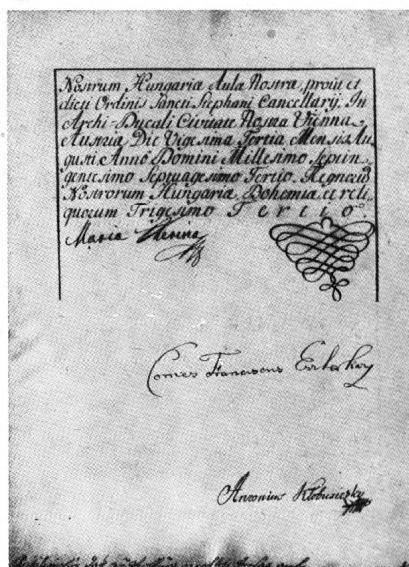 Nostrum Hungariæ Aula Nostra, prout et
dicti Ordinis Sancti Stephani Cancellarij. In
Archi-Ducali Civitate Nostra Vienna
Austriæ Die Vigesima Tertia Mensis Au,
gusti Anno Domini Millesimo septin,
gentesimo septuagesimo Tertio, Regnorũ
Nostrorum Hungariæ, Bohemiæ, et reli,
quorum Trigesimo Tertio.
Maria Theresia
Comes Franciscus Esterhazy
Antonius Klobusiczky